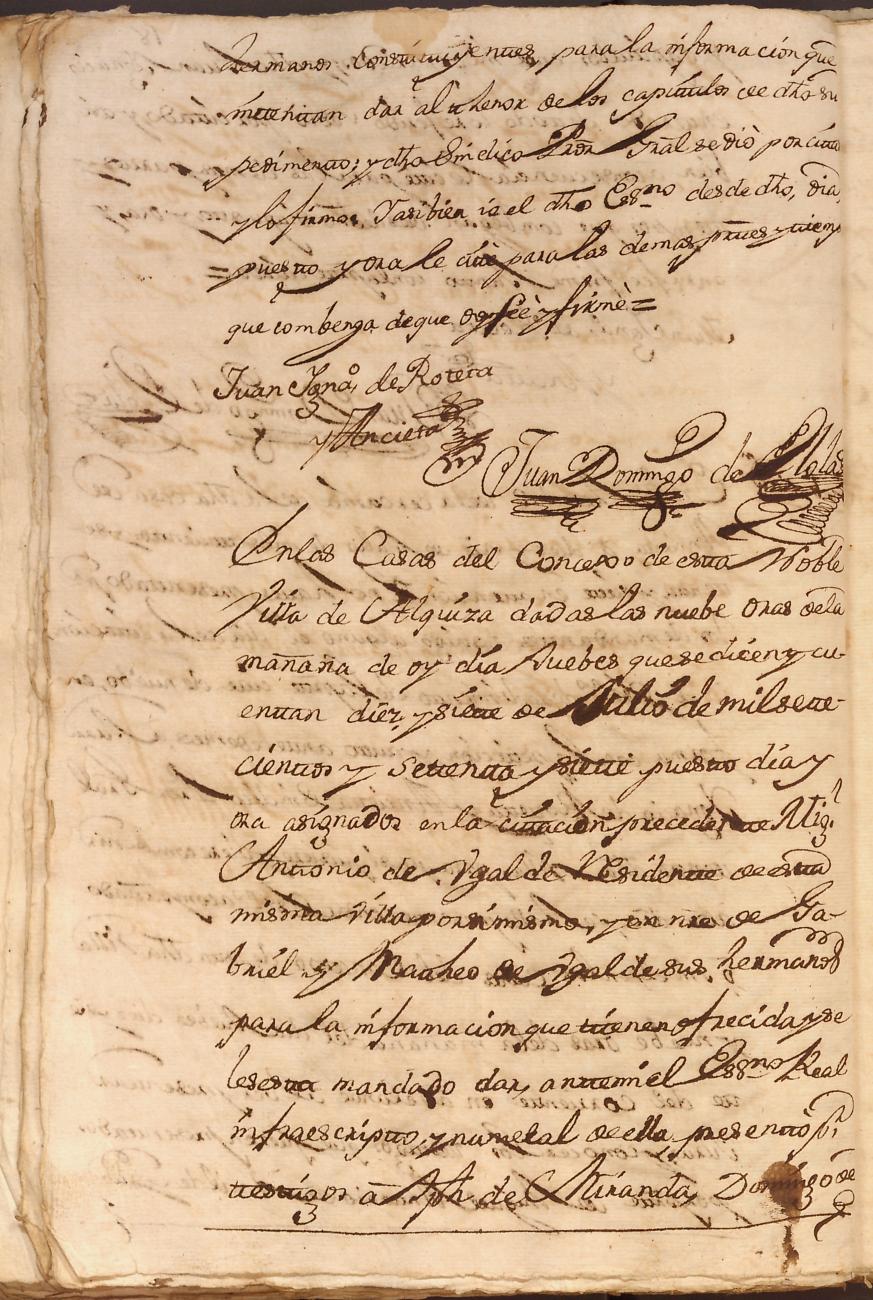 hermanos Constituyentes, para la informacion que
intentan dar al thenor de los capitulos de dho su
pedimento; y dho Sindico Pror Gral se dió por citado
y lo firmó, Tasibien io el dho Essno desde dho, dia,
= puesto y ora le cité para las demas partes y tiempo
que combenga de que doy feè y firmè =
Juan Ignao, de Roteta
y Ancieta
Juan Domingo de
En las Casas del Concexo de esta Noble
Villa de Alquiza dadas las nuebe oras de la
mañana de oy día Juebes que se dicen y cu-
entan diez, y siete de Julio de mil sete-
cientos y Settenta y siette puesto día y
ora asignados en la citación precedente Migl
Antonio de Ygalde Residente de esta
misma Villa por si mismo, y en nre de Ga-
briél y Matheo de Ygalde sus hermanos
para la informacion que tienen ofrecida y se
les esta mandado dar, ante mi el Essno Real
infraescripto y numeral de ella presentó pr
testigos â Jph de Miranda, Domingo de